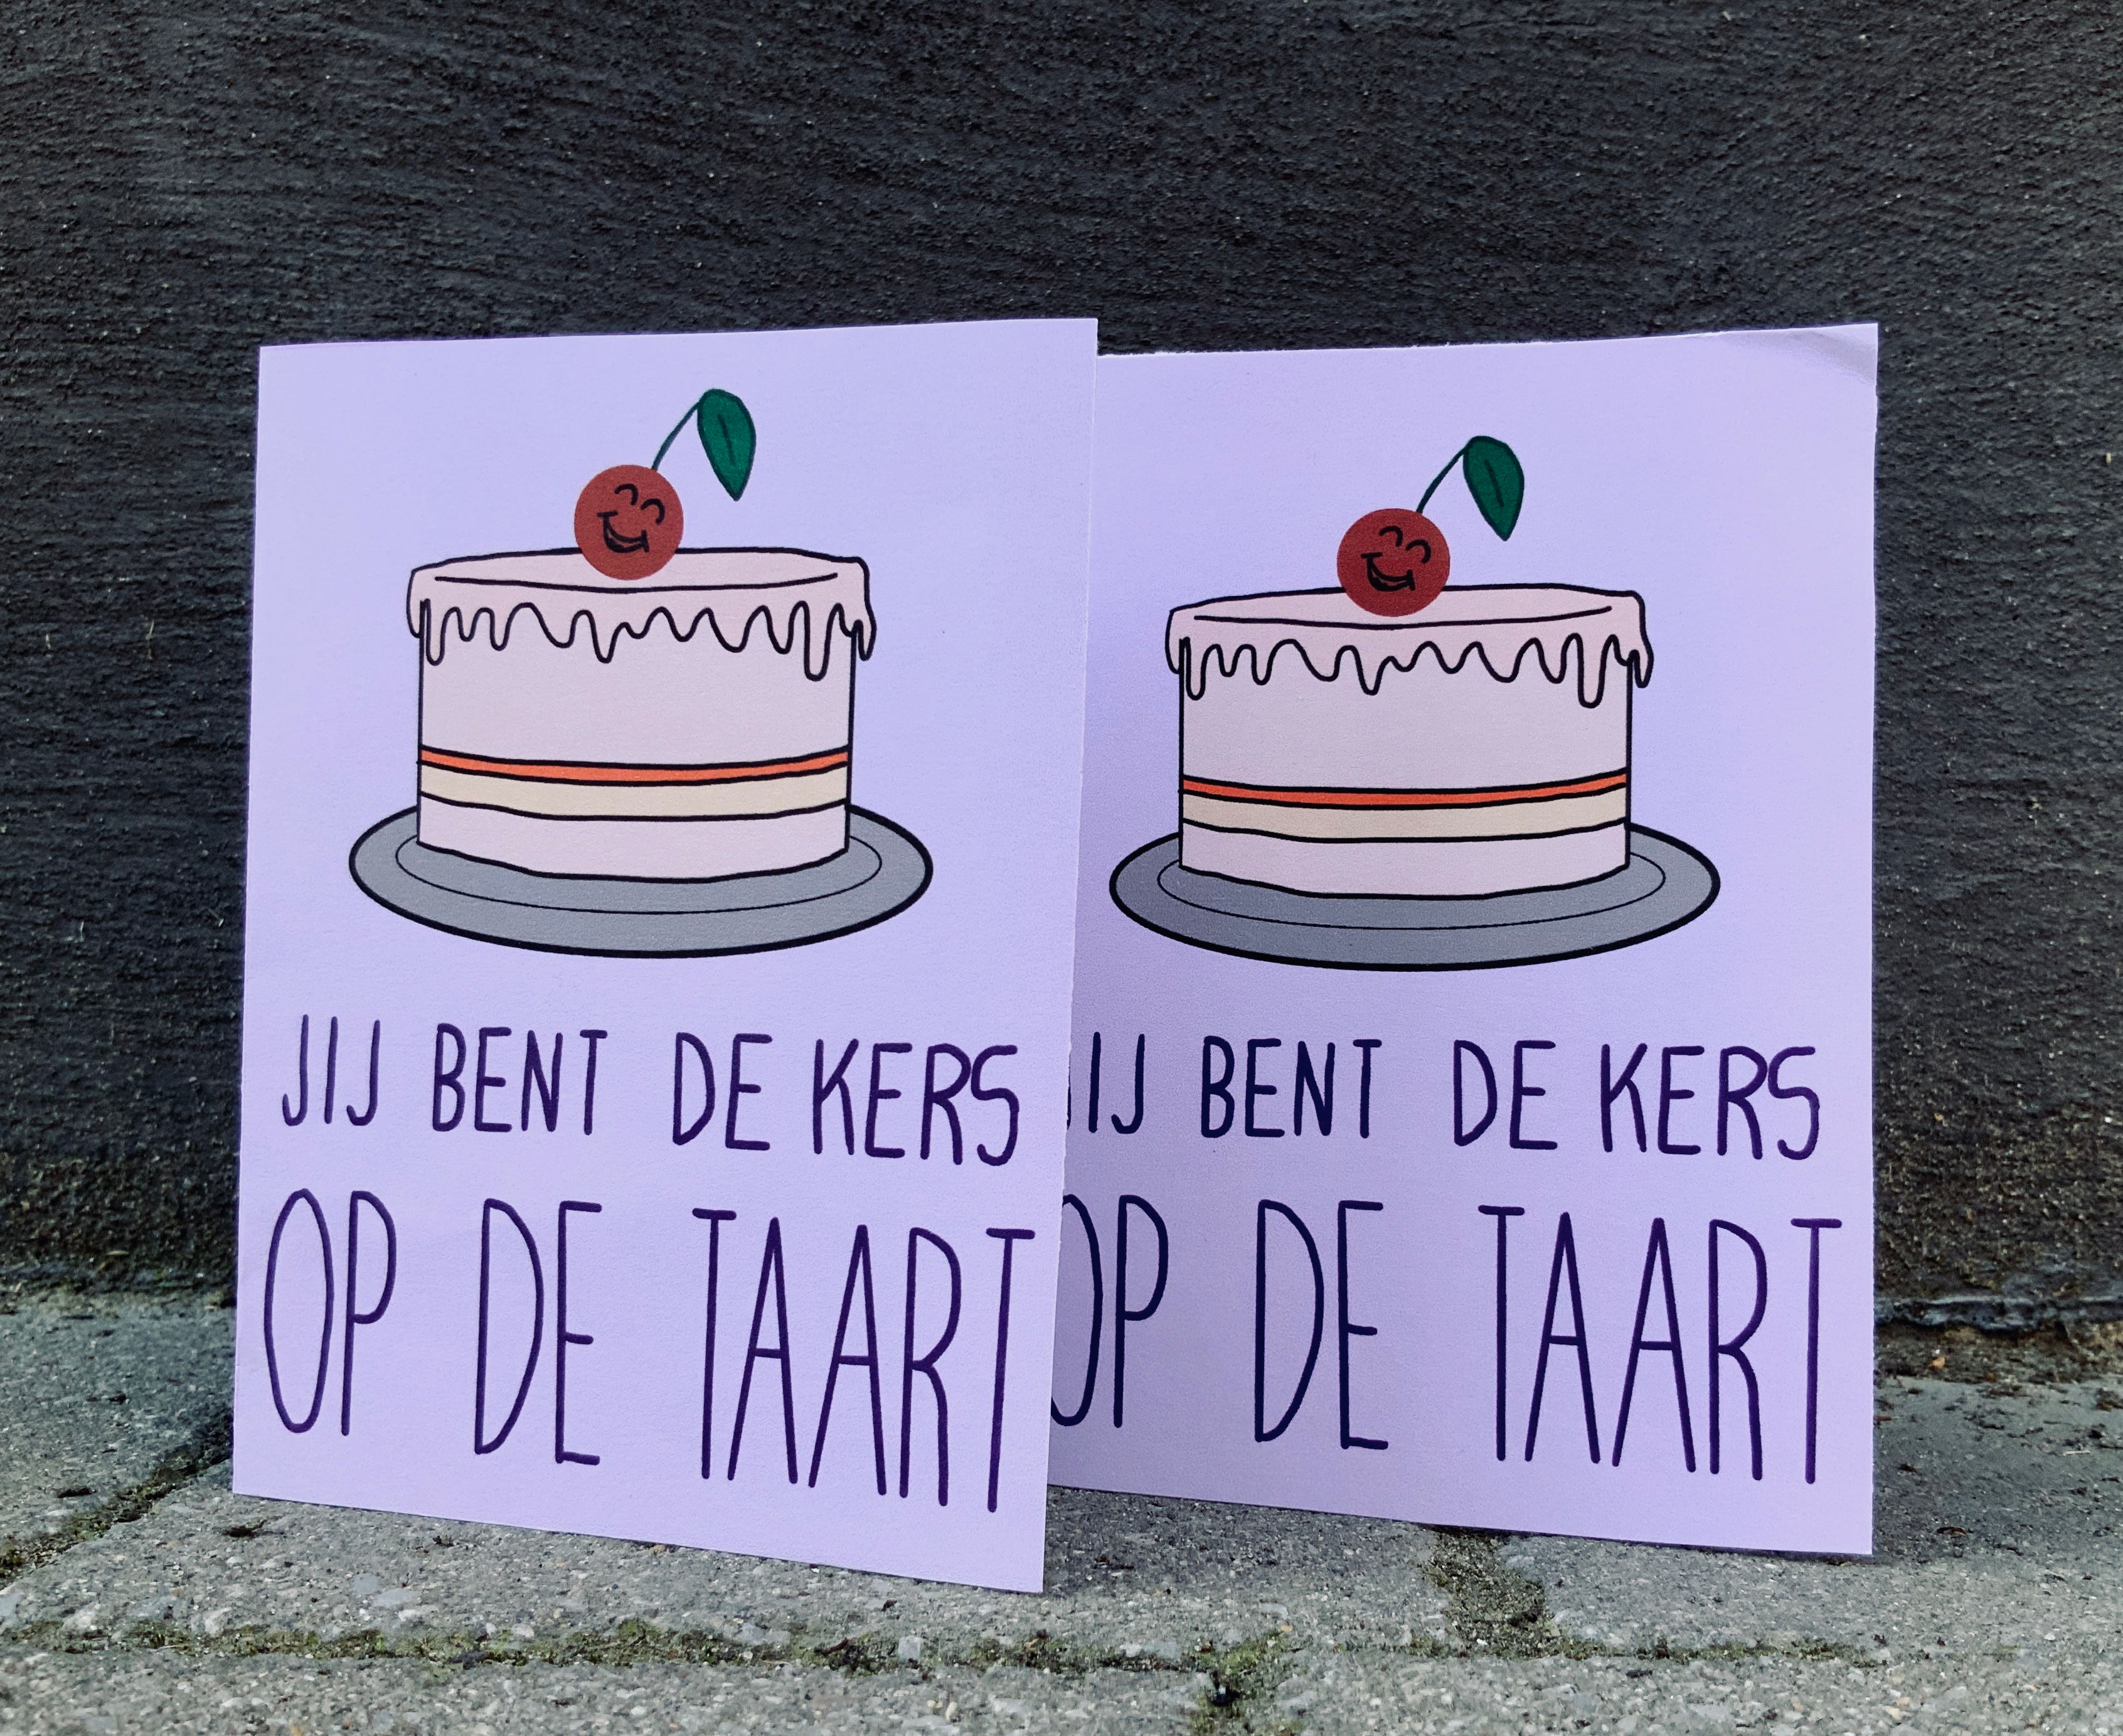 JIJ BENT DE KERS
OP DE TAART
JIJ BENT DE KERS
OP DE TAART